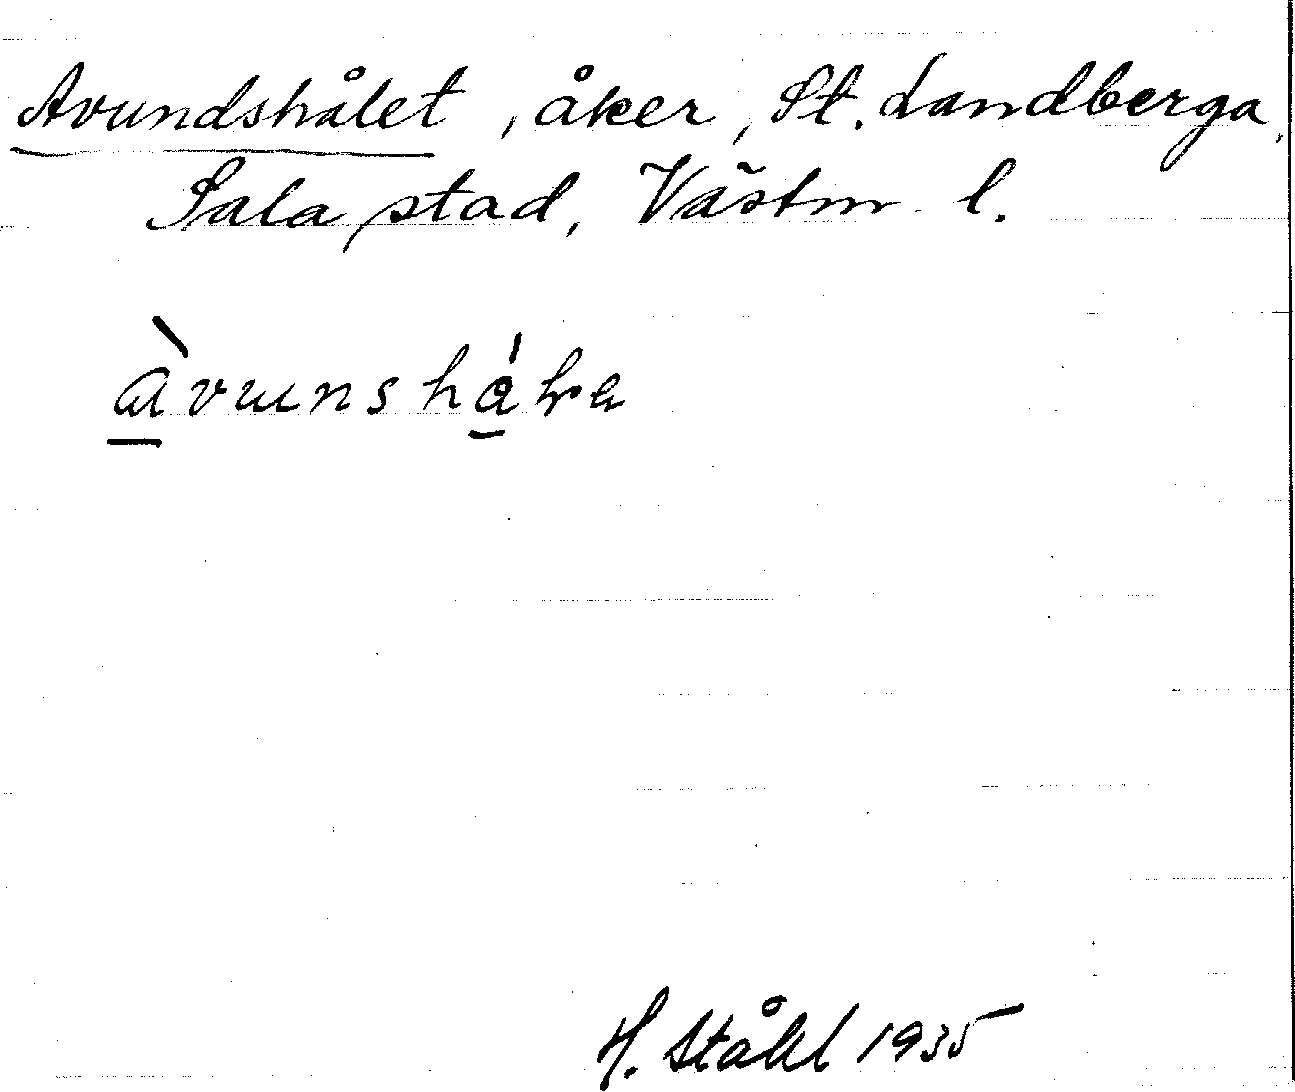 Avundshålet, åker, St. Landberga,
Sala stad, Västm l.
H. Ståhl 1935